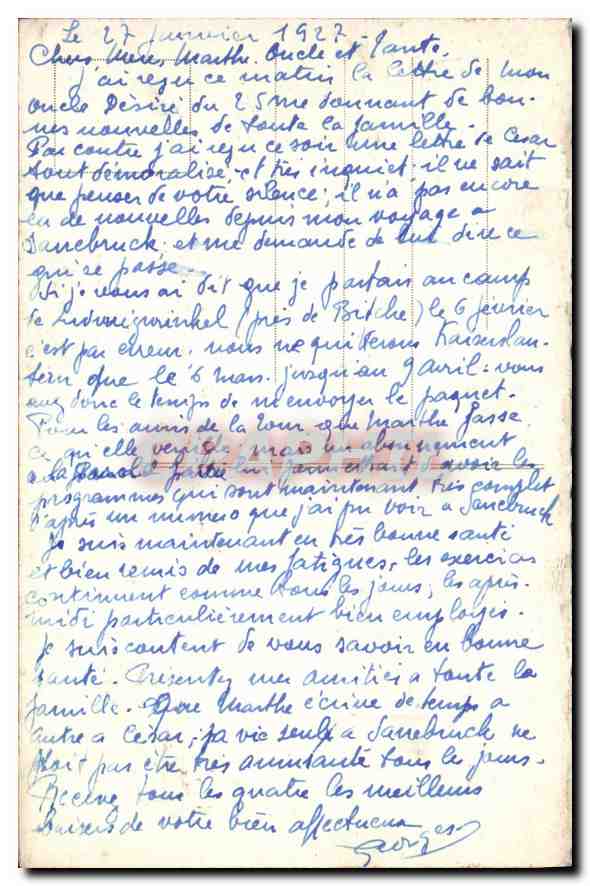 Le 27 Janvier 1927
Chers Mère, Marthe. Oncle et Tante.
J'ai reçu ce matin la lettre de mon
oncle Désiré du 25 me donnant de bon-
nes nouvelles de toute la famille.
Par contre j'ai reçu ce soir une lettre de Cesar
tout démoralisé, et très inquiet; il ne sait
que penser de votre silence; il n'a pas encore
eu de nouvelles depuis mon voyage a
Sarrebruck et me demande de lui dire ce
qui se passe.
Si je vous ai dit que je partais au camp
de Ludwigwinkel (près de Bitche) le 6 février
c'est par erreur. nous ne quitterons Kaiserslau-
tern que le 6 Mars. jusqu'au 9 avril: vous
avez donc le temps de m'envoyer le paquet.
Pour les amis de la Tour que Marthe fasse
ce qu'elle mais un abonnement
a la lui permettrait d'avoir les
programmes qui sont maintenant très complet
d'après un numero que j'ai pu voir a Sarrebruck
Je suis maintenant en très bonne santé
et bien remis de mes fatigues, les exercices
continuent comme tous les jours; les après-
midi particulièrement bien employés.
Je suis content de vous savoir en bonne
santé. Présentez mes amitiés a toute la
famille. Que Marthe écrive de temps a
autre a César; sa vie seule a Sarrebruck ne
doit pas être très amusante tous les jours.
Recevez tous les quatre les meilleurs
baisers de votre bien affectueux
Georges